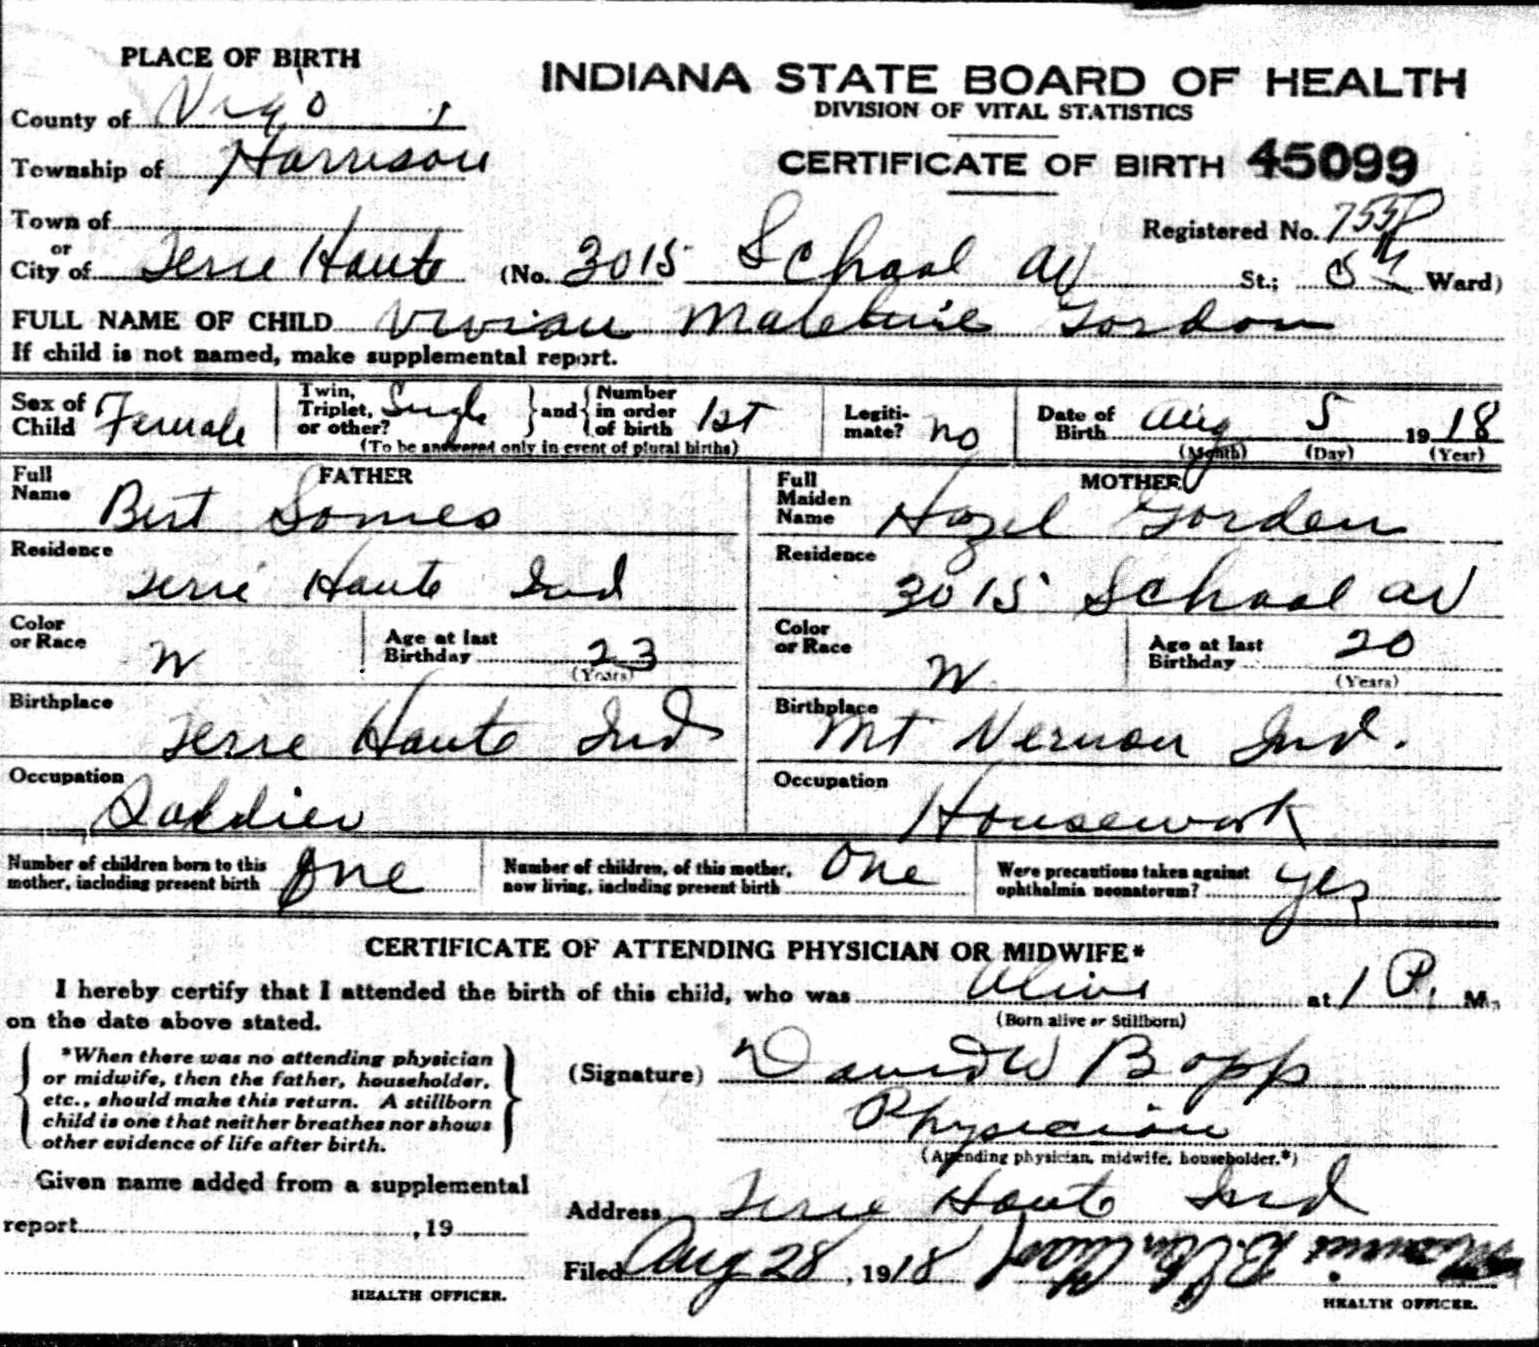 PLACE OF BIRTH
INDIANA STATE BOARD OF HEALTH
DIVISION OF VITAL STATISTICS
CERTIFICATE OF BIRTH 45099
County of Vigo
Township of Harrison
Town of
or
City of Terre Haute (No. 3015 School av St.; 5th Ward)
Registered No.
FULL NAME OF CHILD Vivian Gordon
If child is not named, make supplemental report.
Sex of Child Female
Twin, Triplet, or other? Single and Number in order of birth 1st
(To be answered only in event of plural births)
Legiti-mate? no
Date of Birth Aug 5 1918
(Month) (Day) (Year)
FATHER
Full Name Bert Somes
Residence Terre Haute Ind
Color or Race W
Age at last Birthday 23
(Years)
Birthplace Terre Haute Ind
Occupation Soldier
MOTHER
Full Maiden Name Hazel Gorden
Residence 3015 School av
Color or Race W
Age at last Birthday 20
(Years)
Birthplace Mt Vernon Ind.
Occupation Housework
Number of children born to this mother, including present birth One
Number of children, of this mother, now living, including present birth One
Were precautions taken against ophthalmia neonatorum? yes
CERTIFICATE OF ATTENDING PHYSICIAN OR MIDWIFE*
I hereby certify that I attended the birth of this child, who was Alive at 1 P. M.,
(Born alive or Stillborn)
on the date above stated.
*When there was no attending physician
or midwife, then the father, householder,
etc., should make this return. A stillborn
child is one that neither breathes nor shows
other evidence of life after birth.
(Signature) David W Bopp
Physician
(Attending physician, midwife, householder.*)
Given name added from a supplemental
report , 19
HEALTH OFFICER.
Address Terre Haute Ind
Filed Aug 28, 1918
HEALTH OFFICER.